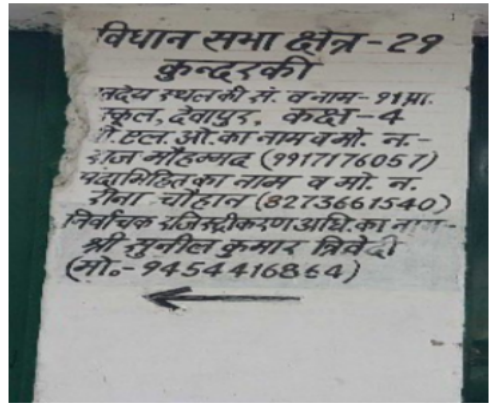 विधान सभा क्षेत्र-29
कुन्दरकी
मतदेय स्थल की सं. व नाम- 91 प्रा.
स्कूल, देवापुर, कक्ष-4
बी.एल.ओ. का नाम व मो. न.-
राज मौहम्मद (9917176057)
पदाभिहित का नाम व मो. न.
रीना चौहान (8273661540)
निर्वाचक रजिस्ट्रीकरण अधि. का नाम-
श्री सुनील कुमार त्रिवेदी
(मो०-9454416864)